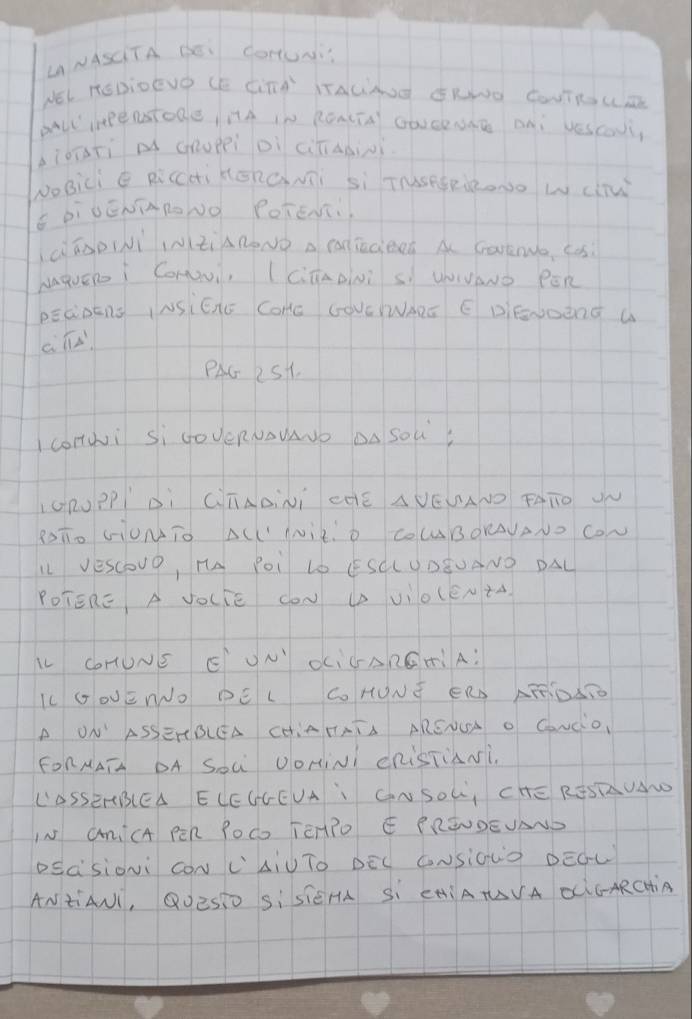 LA NASCITA DEI COMUNI:
NEL MEDIOEVO LE CITTA' ITALIANE ERANO CONTROLLATE
DALL'IMPERATORE, MA IN REALTA' GOVERNATE DAI VESCOVI,
AIUTATI DA GRUPPI DI CITTADINI.
NOBILI E RICCHI MERCANTI SI TRASFERIRONO IN CITTA'
E DIVENTARONO POTENTI.
I CITTADINI INIZIARONO A PARTECIPARE AL GOVERNO, COSI
NAQUERO I COMUNI. I CITTADINI SI UNIVANO PER
DECIDERE INSIEME COME GOVERNARE E DIFENDERE LA
CITTA'.
PAG 251.
I COMUNI SI GOVERNAVANO DA SOLI:
I GRUPPI DI CITTADINI CHE AVEVANO FATTO UN
PATTO GIURATO ALL'INIZIO COLLABORAVANO CON
IL VESCOVO, MA POI LO ESCLUDEVANO DAL
POTERE, A VOLTE CON LA VIOLENZA.
IL COMUNE E' UN' OLIGARCHIA:
IL GOVERNO DEL COMUNE ERA AFFIDATO
A UN' ASSEMBLEA CHIAMATA ARENGA O CONCIO,
FORMATA DA SOLI UOMINI CRISTIANI.
L'ASSEMBLEA ELEGGEVA I CONSOLI, CHE RESTAVANO
IN CARICA PER POCO TEMPO E PRENDEVANO
DECISIONI CON L'AIUTO DEL CONSIGLIO DEGLI
ANZIANI. QUESTO SISTEMA SI CHIAMAVA OLIGARCHIA